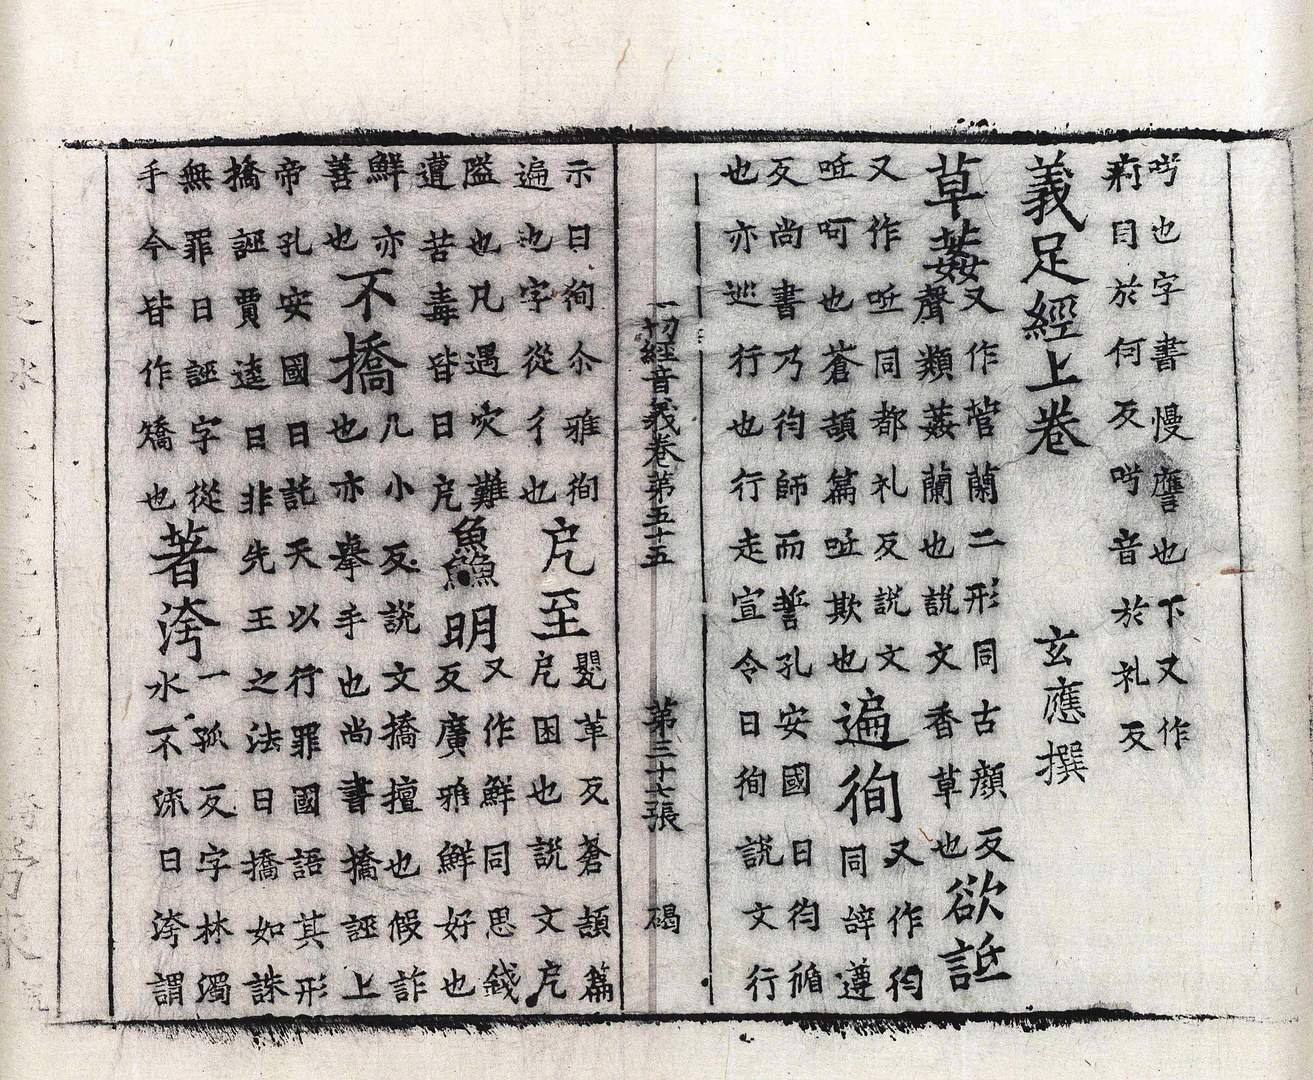 也字書慢譍也下又作
目於何反音於礼反
義足經上卷 玄應撰
草葌
又作菅蘭二形同古顏反
聲類葌蘭也說文香草也
欲詆
又作呧同都礼反說文
呧呵也蒼頡篇呧欺也
遍徇
又作徇同辝遵
反尚書乃徇師而誓孔安國曰徇循
也亦巡行也行走宣令曰徇說文行
一切經音義卷第五十五 第三十七張 碣
示曰徇尒雅徇
遍也字從彳也
戹至
甖革反蒼頡篇
戹困也說文戹
隘也凡遇灾難
遭苦毒皆曰戹
鱻明
又作鮮同思錢
反廣雅鮮好也
鮮亦
善也
不撟
几小反說文撟擅也假詐
也亦擧手也尚書撟誣上
帝孔安國曰託天以行罪國語其形
撟誣賈逵曰非先王之法曰撟如誅
無罪曰誣字從
手今皆作矯也
著洿
一孤反字林濁
水不流曰洿謂